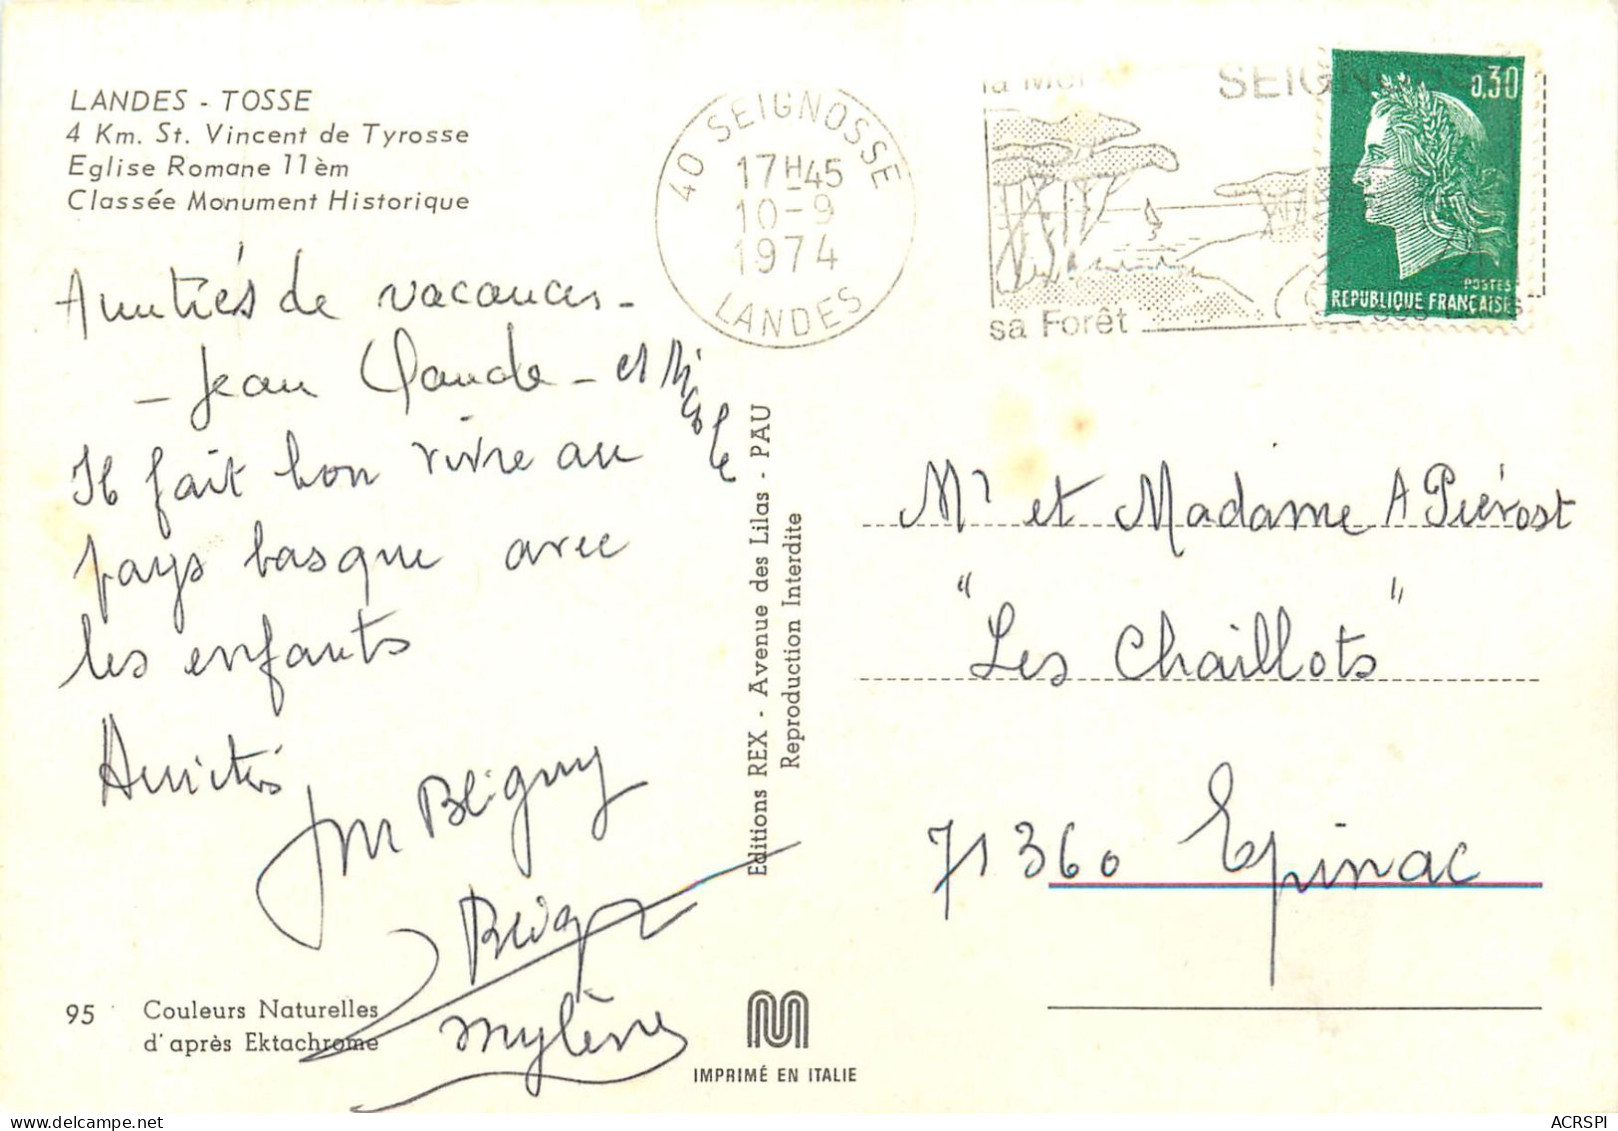 LANDES - TOSSE
4 Km. St. Vincent de Tyrosse
Eglise Romane 11èm
Classée Monument Historique
Amitiés de vacances -
- Jean Claude - et Nicole
Il fait bon vivre au
pays basque avec
les enfants
Amitiés
Bligny
Mylène
95 Couleurs Naturelles
d'après Ektachrome
40 SEIGNOSSE
17H45
10-9
1974
LANDES
la Mer
SEIGNO
sa Forêt
0,30
POSTES
REPUBLIQUE FRANÇAISE
Editions REX - Avenue des Lilas - PAU
Reproduction Interdite
IMPRIMÉ EN ITALIE
Mr et Madame A Piérost
"Les Chaillots"
71360 Epinac
ACRSPI